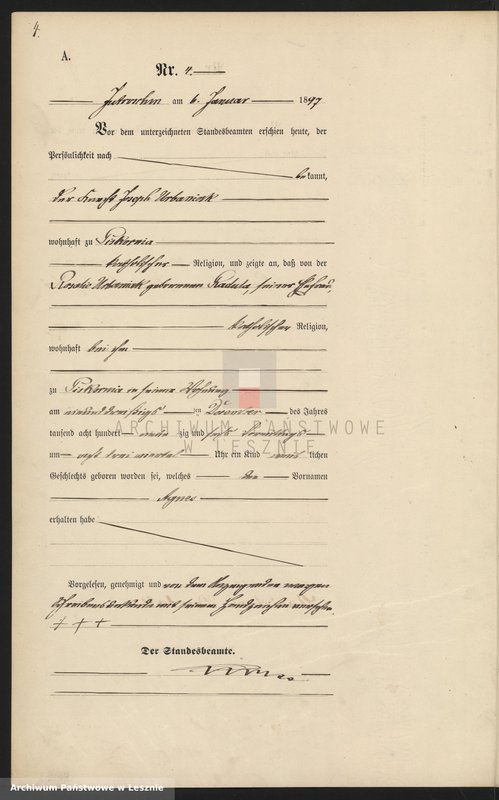 4.
A.
Nr. 4.
Jutroschin am 6. Januar 1897
Vor dem unterzeichneten Standesbeamten erschien heute, der
Persönlichkeit nach
bekannt,
der Knecht Joseph Urbaniak
wohnhaft zu Piskornia
katholischer Religion, und zeigte an, daß von der
Rosalie Urbaniak geborenen Radula, seiner Ehefrau,
katholischer Religion,
wohnhaft bei ihm
zu Piskornia in seiner Wohnung
am einunddreißigsten Dezember des Jahres
tausend acht hundert neunzig und sechs
um acht drei viertel Uhr ein Kind lichen
Geschlechts geboren worden sei, welches den Vornamen
Agnes
erhalten habe
Vorgelesen, genehmigt und von dem Anzeigenden wegen
Schreibensunkunde mit seinem Handzeichen versehen
+ + +
Der Standesbeamte.
ARCHIWUM PAŃSTWOWE
W LESZNIE
Archiwum Państwowe w Lesznie